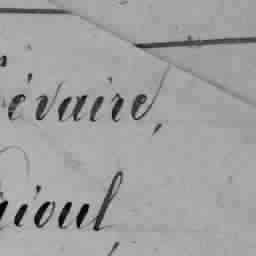 évaire,
ioul